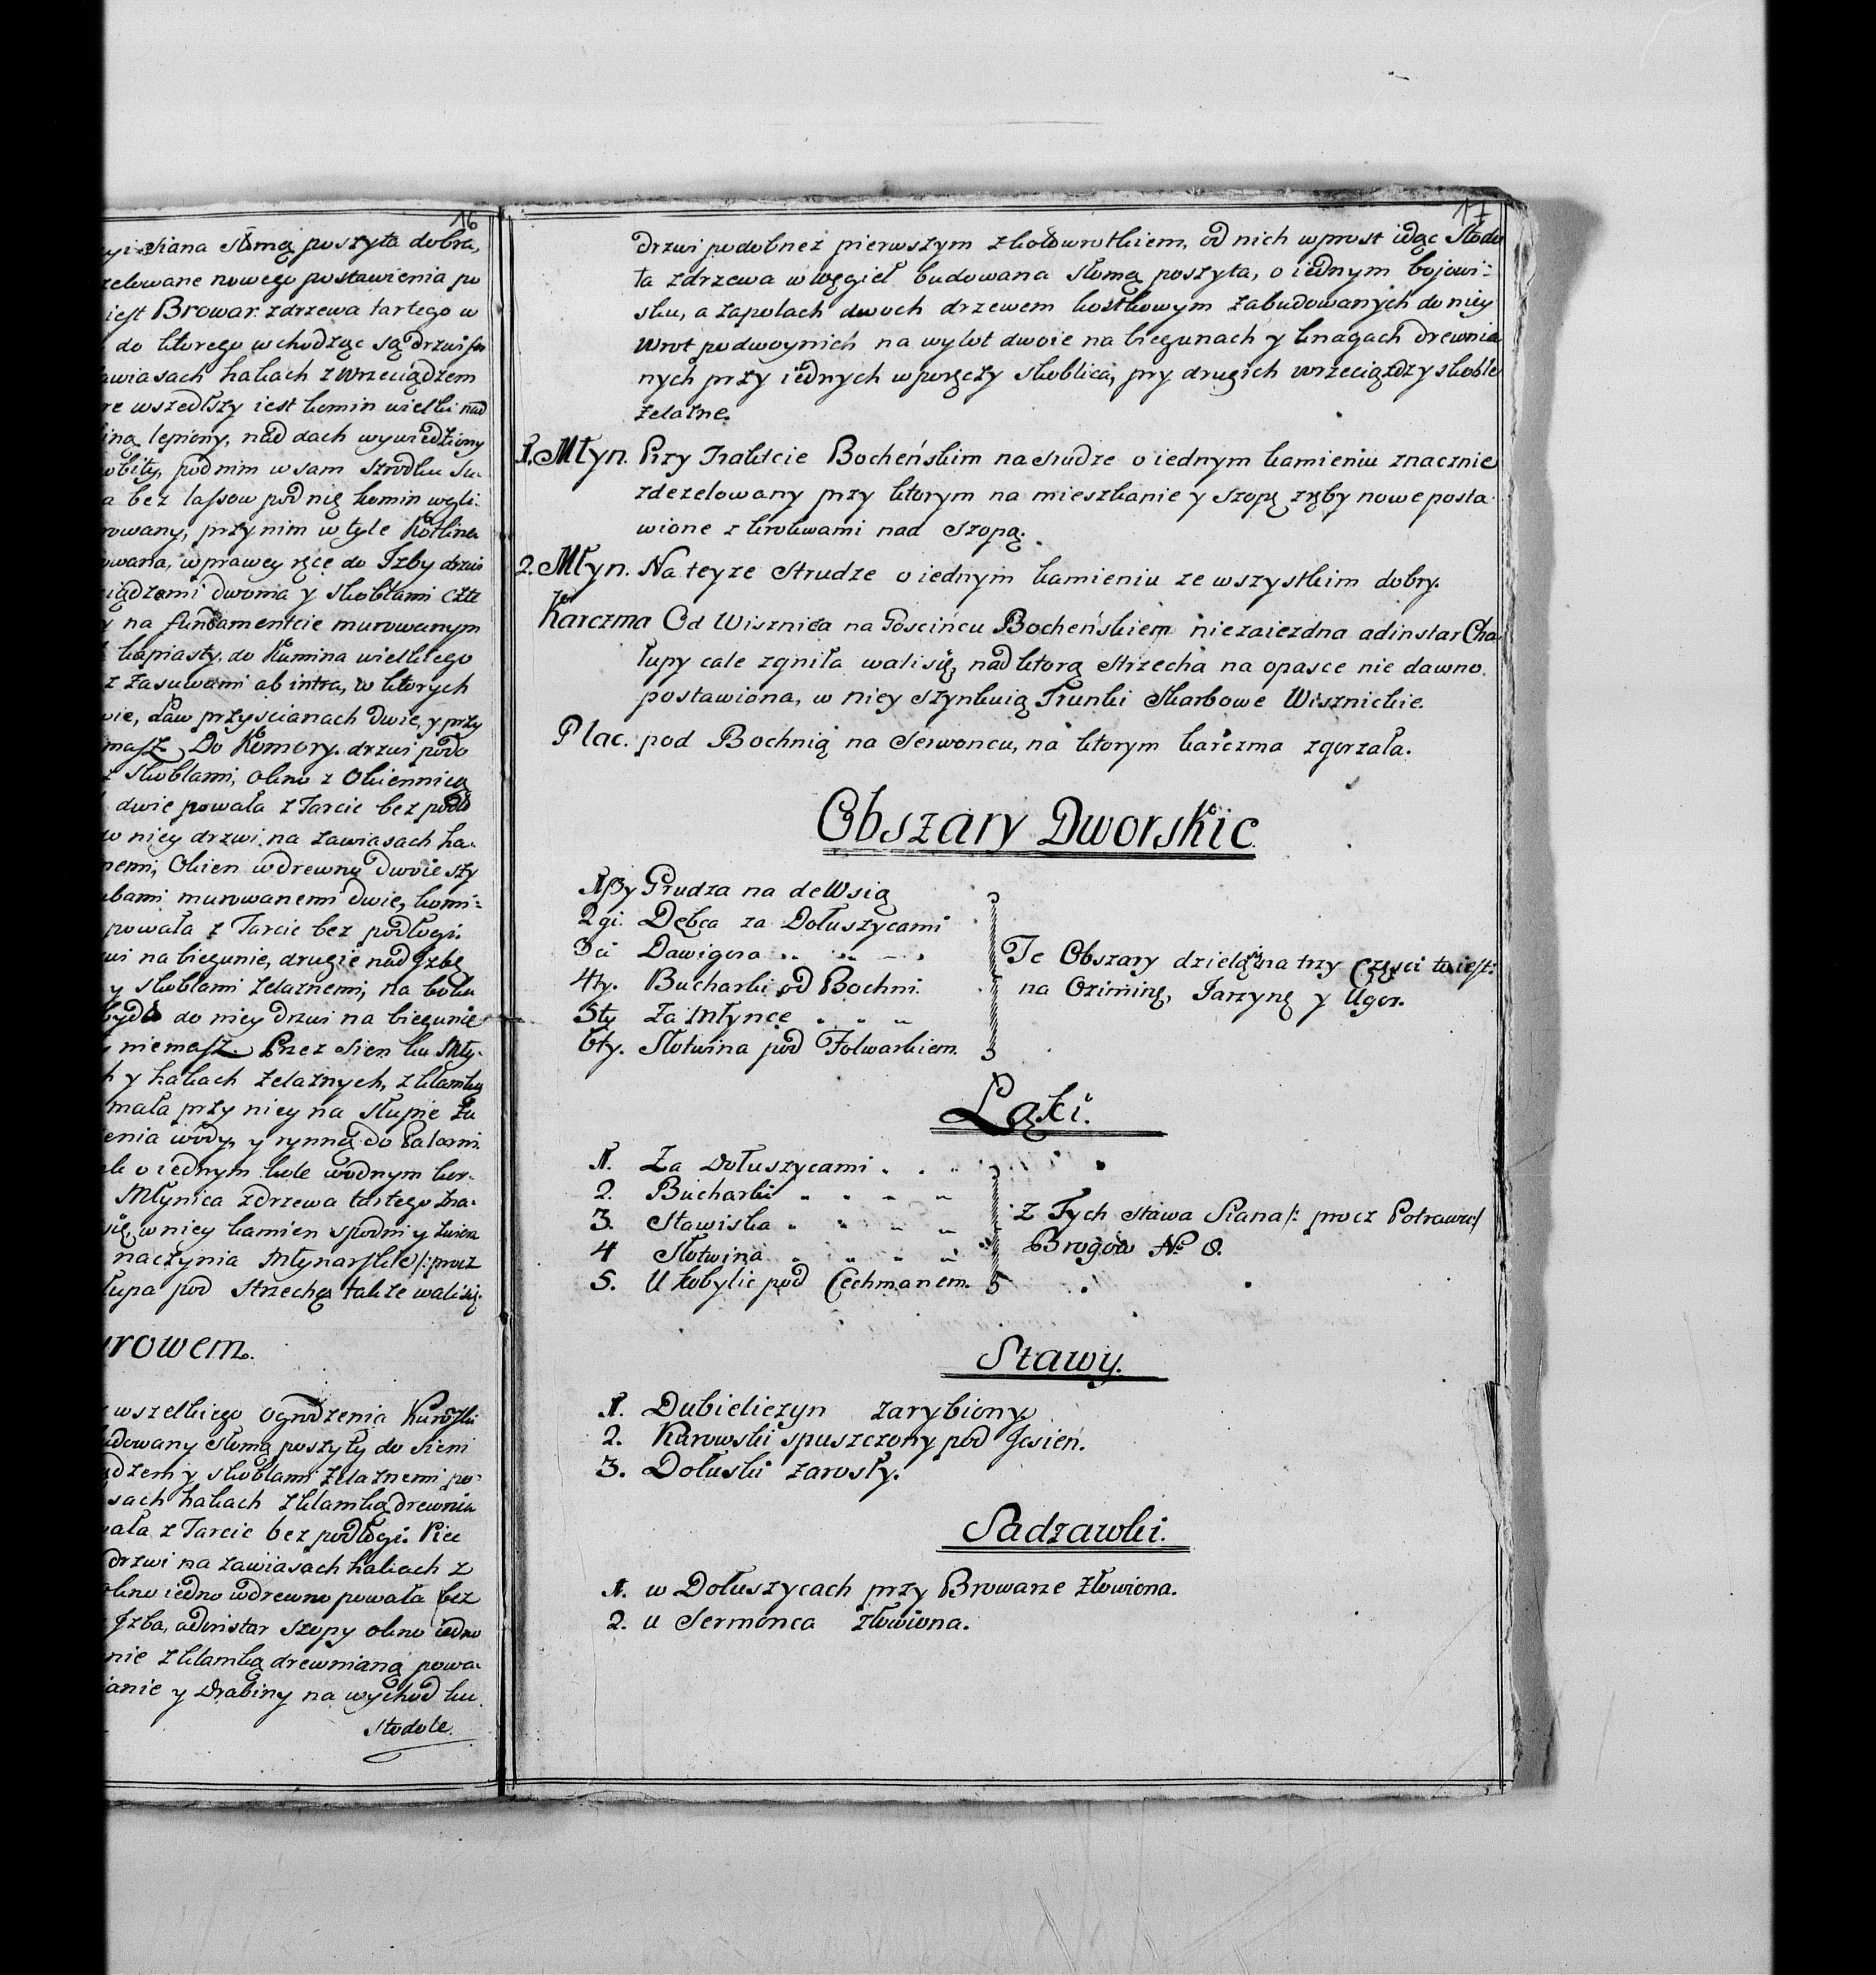 16
yi Siana Słomą poszyta dobra,
zelowane nowego postawienia po
iest Browar zdrzewa tartego w
do ktorego wchodząc są drzwi
awiasach hakach z wrzeciądzem
re wszedłszy iest komin wielki nad
iną lepiony, nad dach wywiedziony
obity, pod nim w sam szrodku
a bez lassow pod nię komin wgli:
rowany, przy nim w tyle Kotlina
owana, w prawey ręce do Izby drzwi
iądzami dwoma y skoblami czte
y na fundamentcie murowanym
kapiasty, do Kumina wielkiego
z zasuwami ab intra, w ktorych
wie, Ław przyscianach dwie, y przy
masz. Do Komory drzwi podo
z skoblami, okno z Okiennicą
dwie powała z Tarcic bez podło
do niey drzwi na zawiasach ha-
nemi, Okien wdrewno dwoie szy
bami murowanemi dwie, komi=
powała z Tarcic bez podłogi.
wi na biegunie, drugie nad Izbę
y skoblami żelaznemi, na boku
bydła do niey drzwi na biegunie
niemasz. Przez Sien ku Mły-
h y hakach żelaznych, z klamką
mała przy niey na słupie
enia wody, y rynną do
o iednym kole wodnym
Młynica zdrzewa tartego zna-
się, w niey kamien spodni y
naczynia Młynarskie /: procz
łupa pod Strzechą także walisię.
urowem.
wszelkiego ogrodzenia Kurowski
udowany słomą poszyty do sieni
ądzem y skoblami żelaznemi po=
sach hakach z klamką drewnia
wała z Tarcic bez podłogi. Piec
drzwi na zawiasach hakach z
okno iedno wdrewno powała bez
Izba, adinstar szopy okno iedno
nie z klamką drewnianą powa-
anie y drabiny na wychod ku
stodole.
17
drzwi podobnez pierwszym zkołowrotkiem, od nich wprost idąc Stodo
ła zdrzewa w węgieł budowana słomą poszyta, o iednym bojowi=
sku, a zapolach dwoch drzewem kostkowym zabudowanych do niey
Wrot podwoynich na wylot dwoie na biegunach y knagach drewnia
nych przy iednych wporęczy skoblica, pry drugich wrzeciądzy skoble
żelazne.
1. Młyn. Przy Trakcie Bocheńskim na strudze o iednym kamieniu znacznie
zdezelowany przy ktorym na mieszkanie y szopę zręby nowe posta
wione z krokwami nad szopą.
2. Młyn. Na teyze Strudze o iednym kamieniu ze wszystkim dobry.
Karczma Od Wisznica na Goscińcu Bocheńskiem niezaiezdna adinstar Cha
łupy cale zgniła walisię, nad ktorą strzecha na opasce nie dawno
postawiona, w niey szynkuią Trunki Skarbowe Wisznickie.
Plac. pod Bochnią na Serwoncu, na ktorym karczma zgorzała.
Obszary Dworskie
1szy Grudza na de Wsią
2gi. Dębca za Dołuszycami
3ci Dawigora
4ty. Bucharki od Bochni.
5ty Za Młynce
6ty. Słotwina pod Folwarkiem.
Te Obszary dzielą się na trzy Części to iest:
na Oziminę, Jarzynę y Ugor.
Łąki.
1. Za Dołuszycami
2. Bucharki
3. Stawiska
4 Słotwina
5. U Kobylic pod Cechmanem.
Z Tych stawa Siana /: procz Potrawu :/
Brogów No 8.
Stawy.
1. Dubieliczyn zarybiony
2. Kurowski spuszczony pod Jesień.
3. Dołuski zarosły.
Sadzawki.
1. w Dołuszycach przy Browarze złowiona.
2. u Sermonca złowiona.